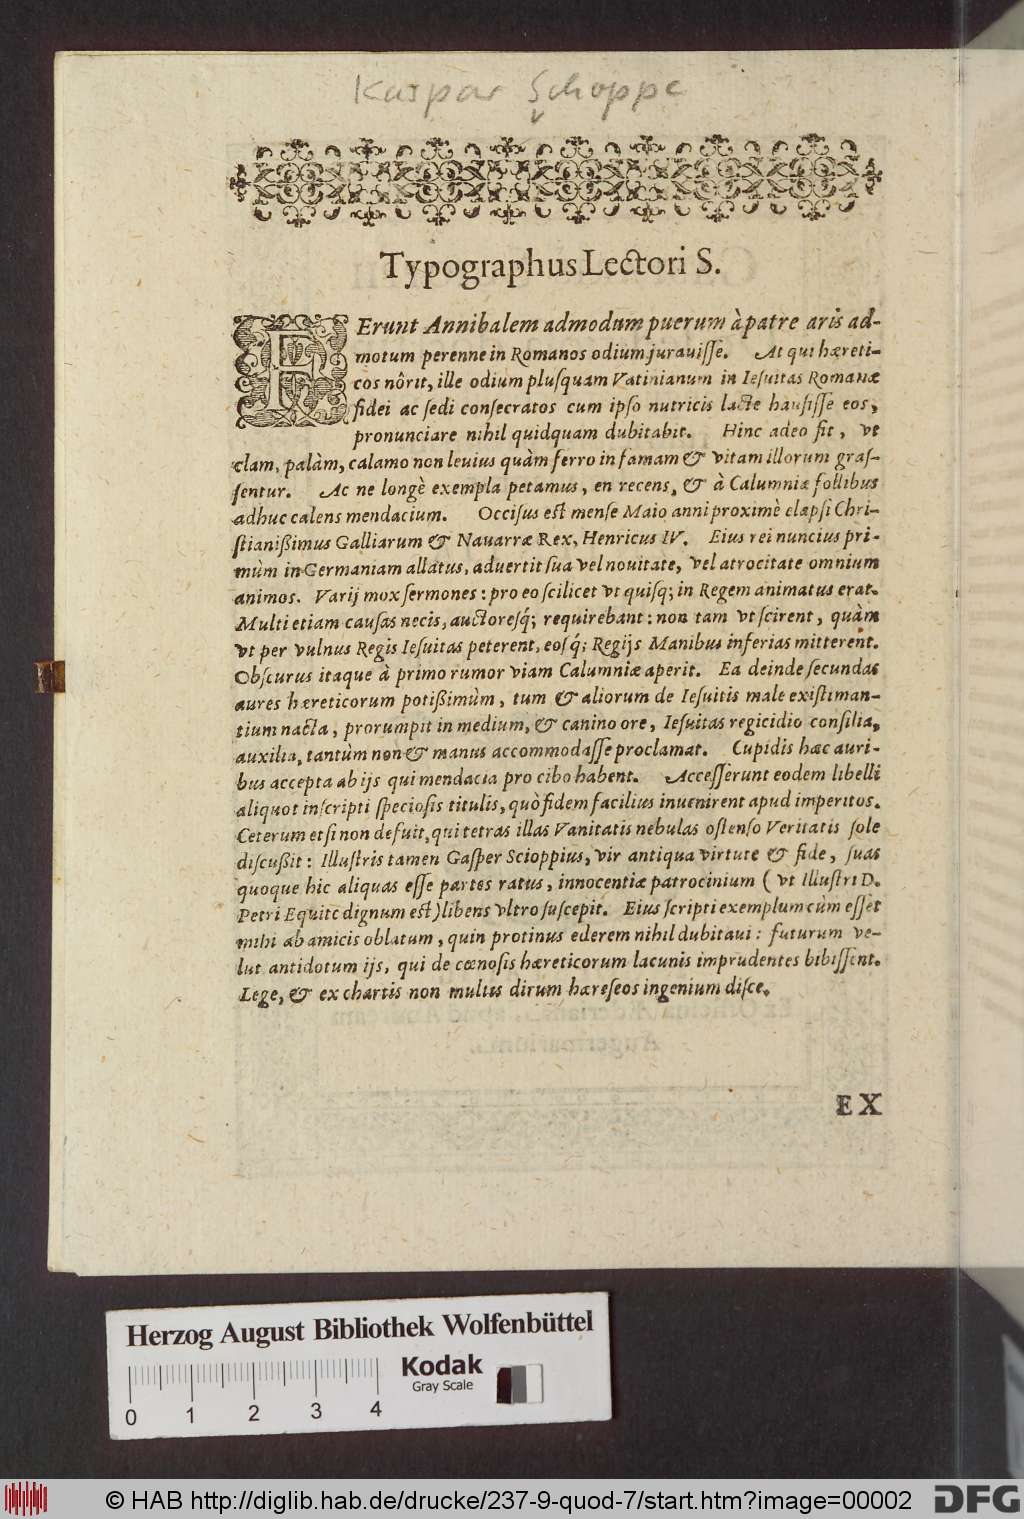 Kaspar Schoppe
Typographus Lectori S.
FErunt Annibalem admodum puerum à patre aris ad-
motum perenne in Romanos odium jurauiſſe. At qui hæreti-
cos nôrit, ille odium pluſquam Vatinianum in Ieſuitas Romanæ
fidei ac ſedi conſecratos cum ipſo nutricis lacte hauſiſſe eos,
pronunciare nihil quidquam dubitabit. Hinc adeo fit, vt
clam, palàm, calamo non leuius quàm ferro in famam & vitam illorum graſ-
ſentur. Ac ne longè exempla petamus, en recens, & à Calumniæ follibus
adhuc calens mendacium. Occiſus eſt menſe Maio anni proximè elapſi Chri-
ſtianißimus Galliarum & Nauarræ Rex, Henricus IV. Eius rei nuncius pri-
mùm in Germaniam allatus, aduertit ſua vel nouitate, vel atrocitate omnium
animos. Varij mox ſermones: pro eo ſcilicet vt quiſq; in Regem animatus erat.
Multi etiam cauſas necis, auctoreſq́; requirebant: non tam vt ſcirent, quàm
vt per vulnus Regis Ieſuitas peterent, eoſq́; Regijs Manibus inferias mitterent.
Obſcurus itaque à primo rumor viam Calumniæ aperit. Ea deinde ſecundas
aures hæreticorum potißimùm, tum & aliorum de Ieſuitis male exiſtiman-
tium nacta, prorumpit in medium, & canino ore, Ieſuitas regicidio conſilia,
auxilia, tantùm non & manus accommodaſſe proclamat. Cupidis hæc auri-
bus accepta ab ijs qui mendacia pro cibo habent. Acceſſerunt eodem libelli
aliquot inſcripti ſpecioſis titulis, quò fidem facilius inuenirent apud imperitos.
Ceterum etſi non defuit, qui tetras illas Vanitatis nebulas oſtenſo Veritatis ſole
diſcußit: Illuſtris tamen Gaſper Scioppius, vir antiqua virtute & fide, ſuas
quoque hic aliquas eſſe partes ratus, innocentiæ patrocinium (vt Illuſtri D.
Petri Equite dignum eſt) libens vltro ſuſcepit. Eius ſcripti exemplum cùm eſſet
mihi ab amicis oblatum, quin protinus ederem nihil dubitaui: futurum ve-
lut antidotum ijs, qui de cœnoſis hæreticorum lacunis imprudentes bibiſſent.
Lege, & ex chartis non multis dirum hæreſeos ingenium diſce.
EX
Herzog August Bibliothek Wolfenbüttel
Kodak
Gray Scale
0 1 2 3 4
© HAB http://diglib.hab.de/drucke/237-9-quod-7/start.htm?image=00002
DFG